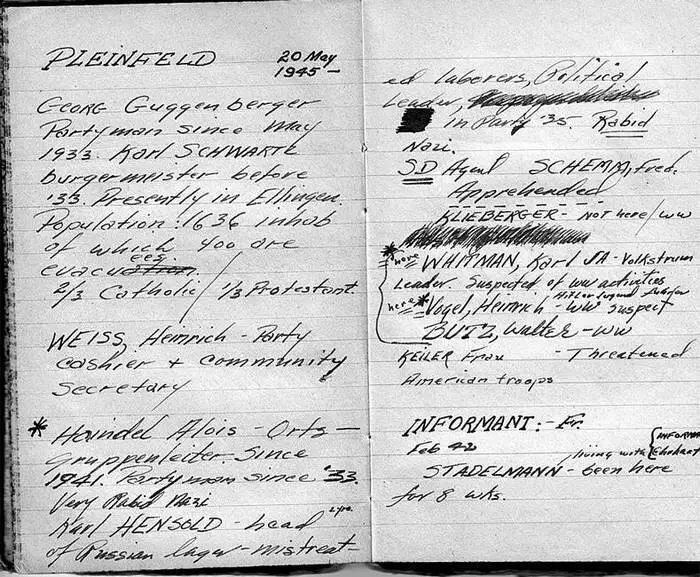 PLEINFELD
20 May
1945 -
Georg Guggenberger
Party man since May
1933. Karl SCHWARTZ
burgermeister before
'33. Presently in Ellingen.
Population: 1636 inhab
of which 400 are
evacuees.
2/3 Catholic / 1/3 Protestant.
WEISS, Heinrich - Party
cashier + community
Secretary
* Haindel Alois - Orts-
gruppenleiter. Since
1941. Party man since '33.
Very Rabid Nazi
Karl HENSOLD - head
of Russian lager - mistreat-
ed laborers, Political
Leader,
in Party '35. Rabid
Nazi.
SD Agent SCHEMM, Fred.
Apprehended
KLIEBERGER - NOT here / WW
* here WHITMAN, Karl SA - Volkstrum
Leader. Suspected of WW activities
Hitler Jugend
here * Vogel, Heinrich - WW Suspect
BUTZ, Walter - WW
KEILER Frau - Threatened
American troops
INFORMANT: - Fr.
Feb 42 living with { INFORM Ehrhart
STADELMANN - been here
for 8 wks.